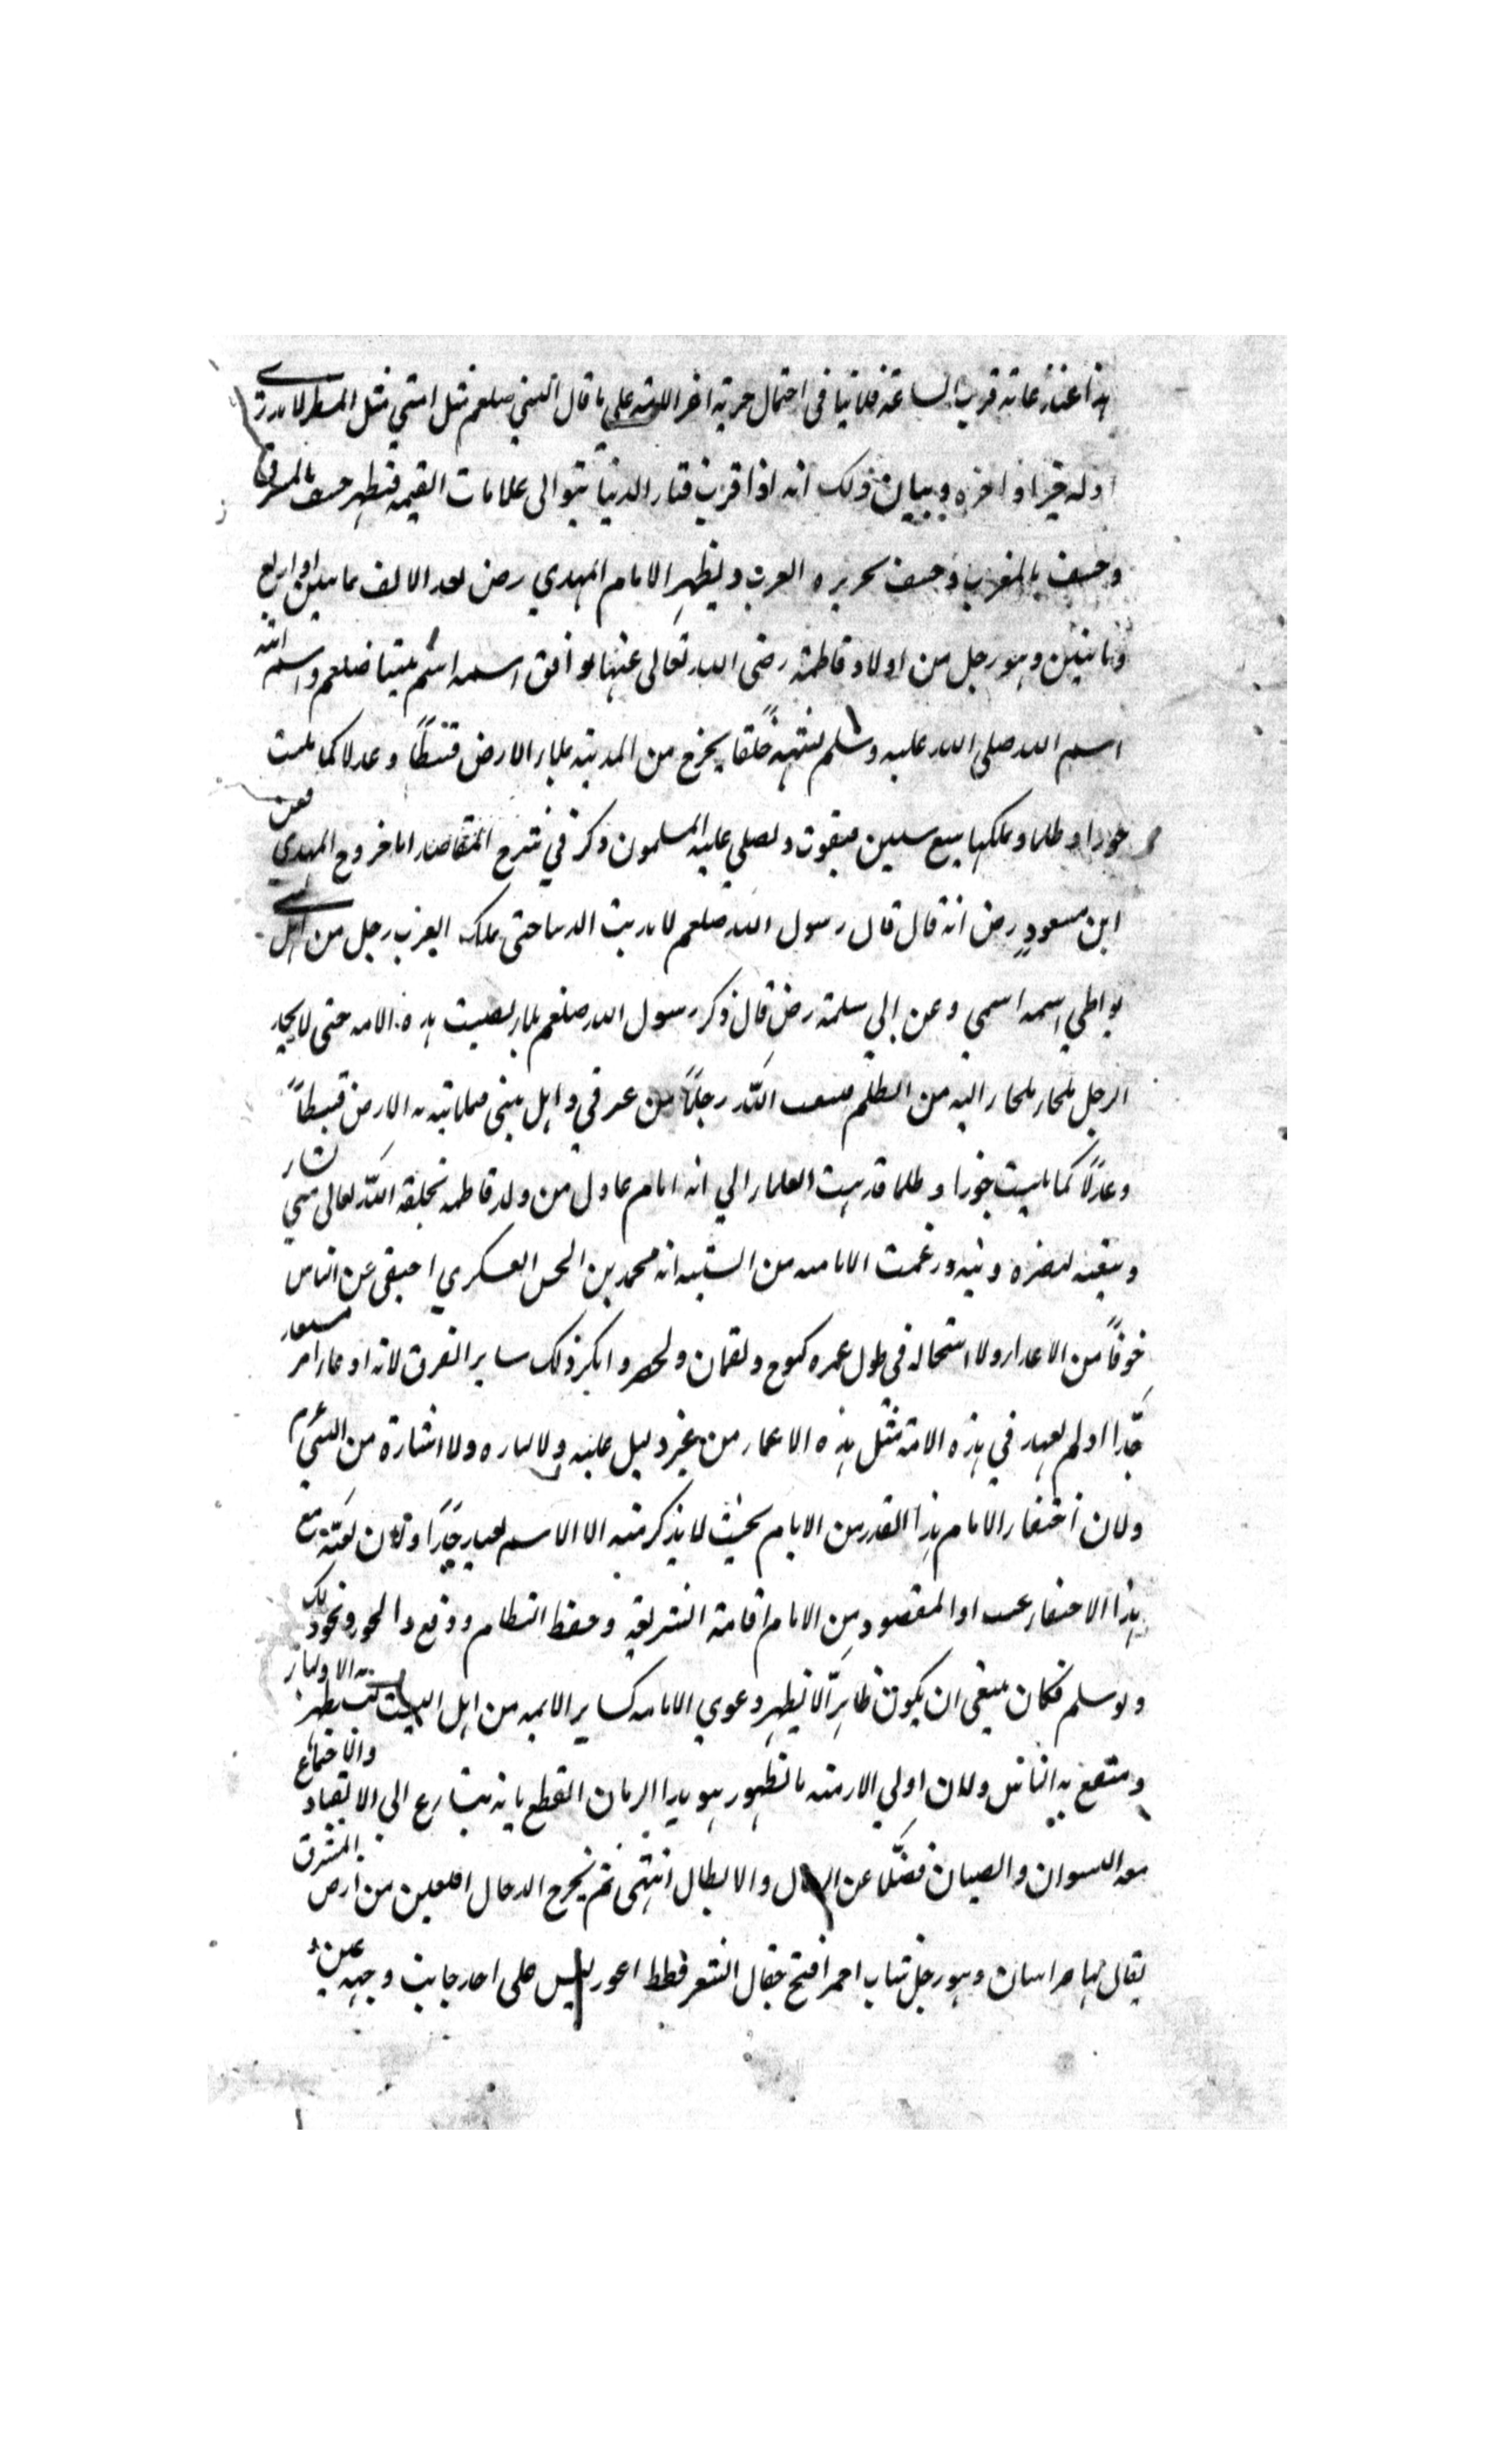 هذا عند غاية قرب الساعة فلا ينافي احتمال خرية اخر الامة علي ما قال النبي صلعم مثل امتي مثل المطر لا يدري
اوله خير او اخره وبيان ذلك انه اذا قرب فناء الدنيا يتوالى علامات القيمة فتظهر خسف بالمشرق
وخسف بالمغرب وخسف بجزيره العرب ويظهر الامام المهدي رض بعد الالف بمايتين او اربع
وثمانين وهو رجل من اولاد فاطمة رضي الله تعالى عنها يوافق اسمه اسم نبينا صلعم واسم ابيه
اسم الله صلى الله عليه وسلم يشبهه خلقا يخرج من المدينة يملاء الارض قسطًا وعدلا كما ملئت
جورا و ظلما ويملكها سبع سنين فيموت ويصلي عليه المسلمون ذكر في شرح المقاصد اما خروج المهدي فعن
ابن مسعود رض انه قال قال رسول الله صلعم لا يذهب الدنيا حتى يملك العرب رجل من اهل بيتي
يواطي اسمه اسمي وعن ابي سلمة رض قال ذكر رسول الله صلعم بلاء يصيب هذه الامه حتى لا يجد
الرجل ملجاء يلجاء اليه من الظلم فيبعث الله رجلًا من عترتي واهل بيتي فيملاء به الارض قسطًا
وعدلًا كما ملئت جورا و ظلما فذهب العلماء الي انه امام عادل من ولد فاطمه يخلقه الله تعالى متي شاء
ويبعثه لنصرة دينه وزعمت الامامية من الشيعه انه محمد بن الحسن العسكري اختفى عن الناس
خوفًا من الاعداء ولا استحالة في طول عمره كنوح ولقمان والخضر وانكر ذلك ساير الفرق لانه ادعاء امر مستبعد
جدًا اذ لم يعهد في هذه الامة مثل هذه الاعمار من غير دليل عليه ولا اماره ولا اشارة من النبي ءم
ولان اختفاء الامام هذا القدر من الايام بحيث لا يذكر منه الا الاسم بعيد جدًا ولان بعثه مع
هذا الاختفاء عبث اذ المقصود من الامام اقامة الشريعة وحفظ النظام ودفع الجور ونحو ذلك
ولو سلم فكان ينبغي ان يكون ظاهرًا لا يظهر دعوي الامامه كساير الائمه من اهل البيت ليستظهر به الاولياء
وينتفع به الناس ولان اولي الازمنه بالظهور هو هذا الزمان للقطع بانه يتسارع الى الانقياد والاجتماع
معه النسوان والصبيان فضلًا عن الرجال والابطال انتهى ثم يخرج الدجال اللعين من ارض المشرق
يقال لها خراسان وهو رجل شاب احمر افتح جفال الشعر قطط اعور ليس على احد جانب وجهه عين